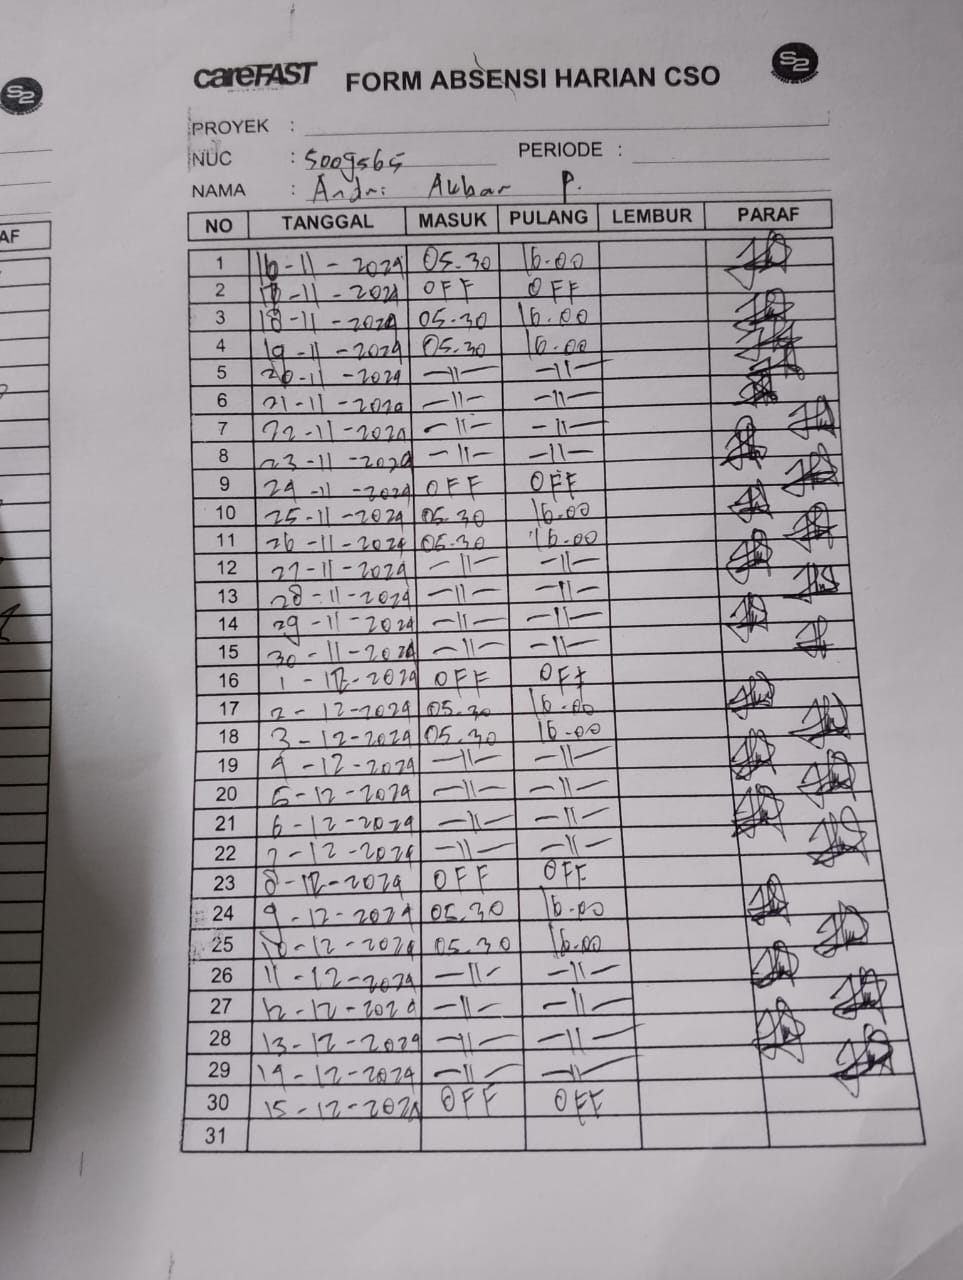 careFAST FORM ABSENSI HARIAN CSO S2
S2
PROYEK :
NUC : 5009565 PERIODE :
NAMA : Andri Akbar P.
AF
NO TANGGAL MASUK PULANG LEMBUR PARAF
1 16-11-2024 05.30 16.00
2 17-11-2024 OFF OFF
3 18-11-2024 05.30 16.00
4 19-11-2024 05.30 16.00
5 20-11-2024 —11— —11—
6 21-11-2024 —11— —11—
7 22-11-2024 —11— —11—
8 23-11-2024 —11— —11—
9 24-11-2024 OFF OFF
10 25-11-2024 05.30 16.00
11 26-11-2024 05.30 16.00
12 27-11-2024 —11— —11—
13 28-11-2024 —11— —11—
14 29-11-2024 —11— —11—
15 30-11-2024 —11— —11—
16 1-12-2024 OFF OFF
17 2-12-2024 05.30 16.00
18 3-12-2024 05.30 16.00
19 4-12-2024 —11— —11—
20 5-12-2024 —11— —11—
21 6-12-2024 —11— —11—
22 7-12-2024 —11— —11—
23 8-12-2024 OFF OFF
24 9-12-2024 05.30 16.00
25 10-12-2024 05.30 16.00
26 11-12-2024 —11— —11—
27 12-12-2024 —11— —11—
28 13-12-2024 —11— —11—
29 14-12-2024 —11— —11—
30 15-12-2024 OFF OFF
31